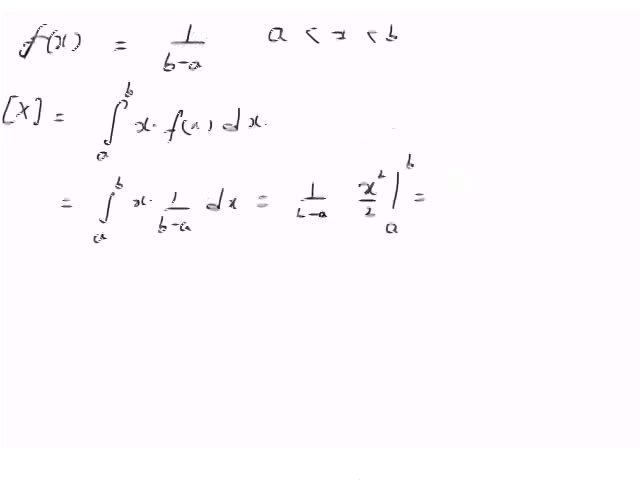 f(x) = 1/(b-a) a < x < b
[X] = ∫_a^b x. f(x) dx.
= ∫_a^b x. 1/(b-a) dx = 1/(b-a) x²/2 |_a^b =